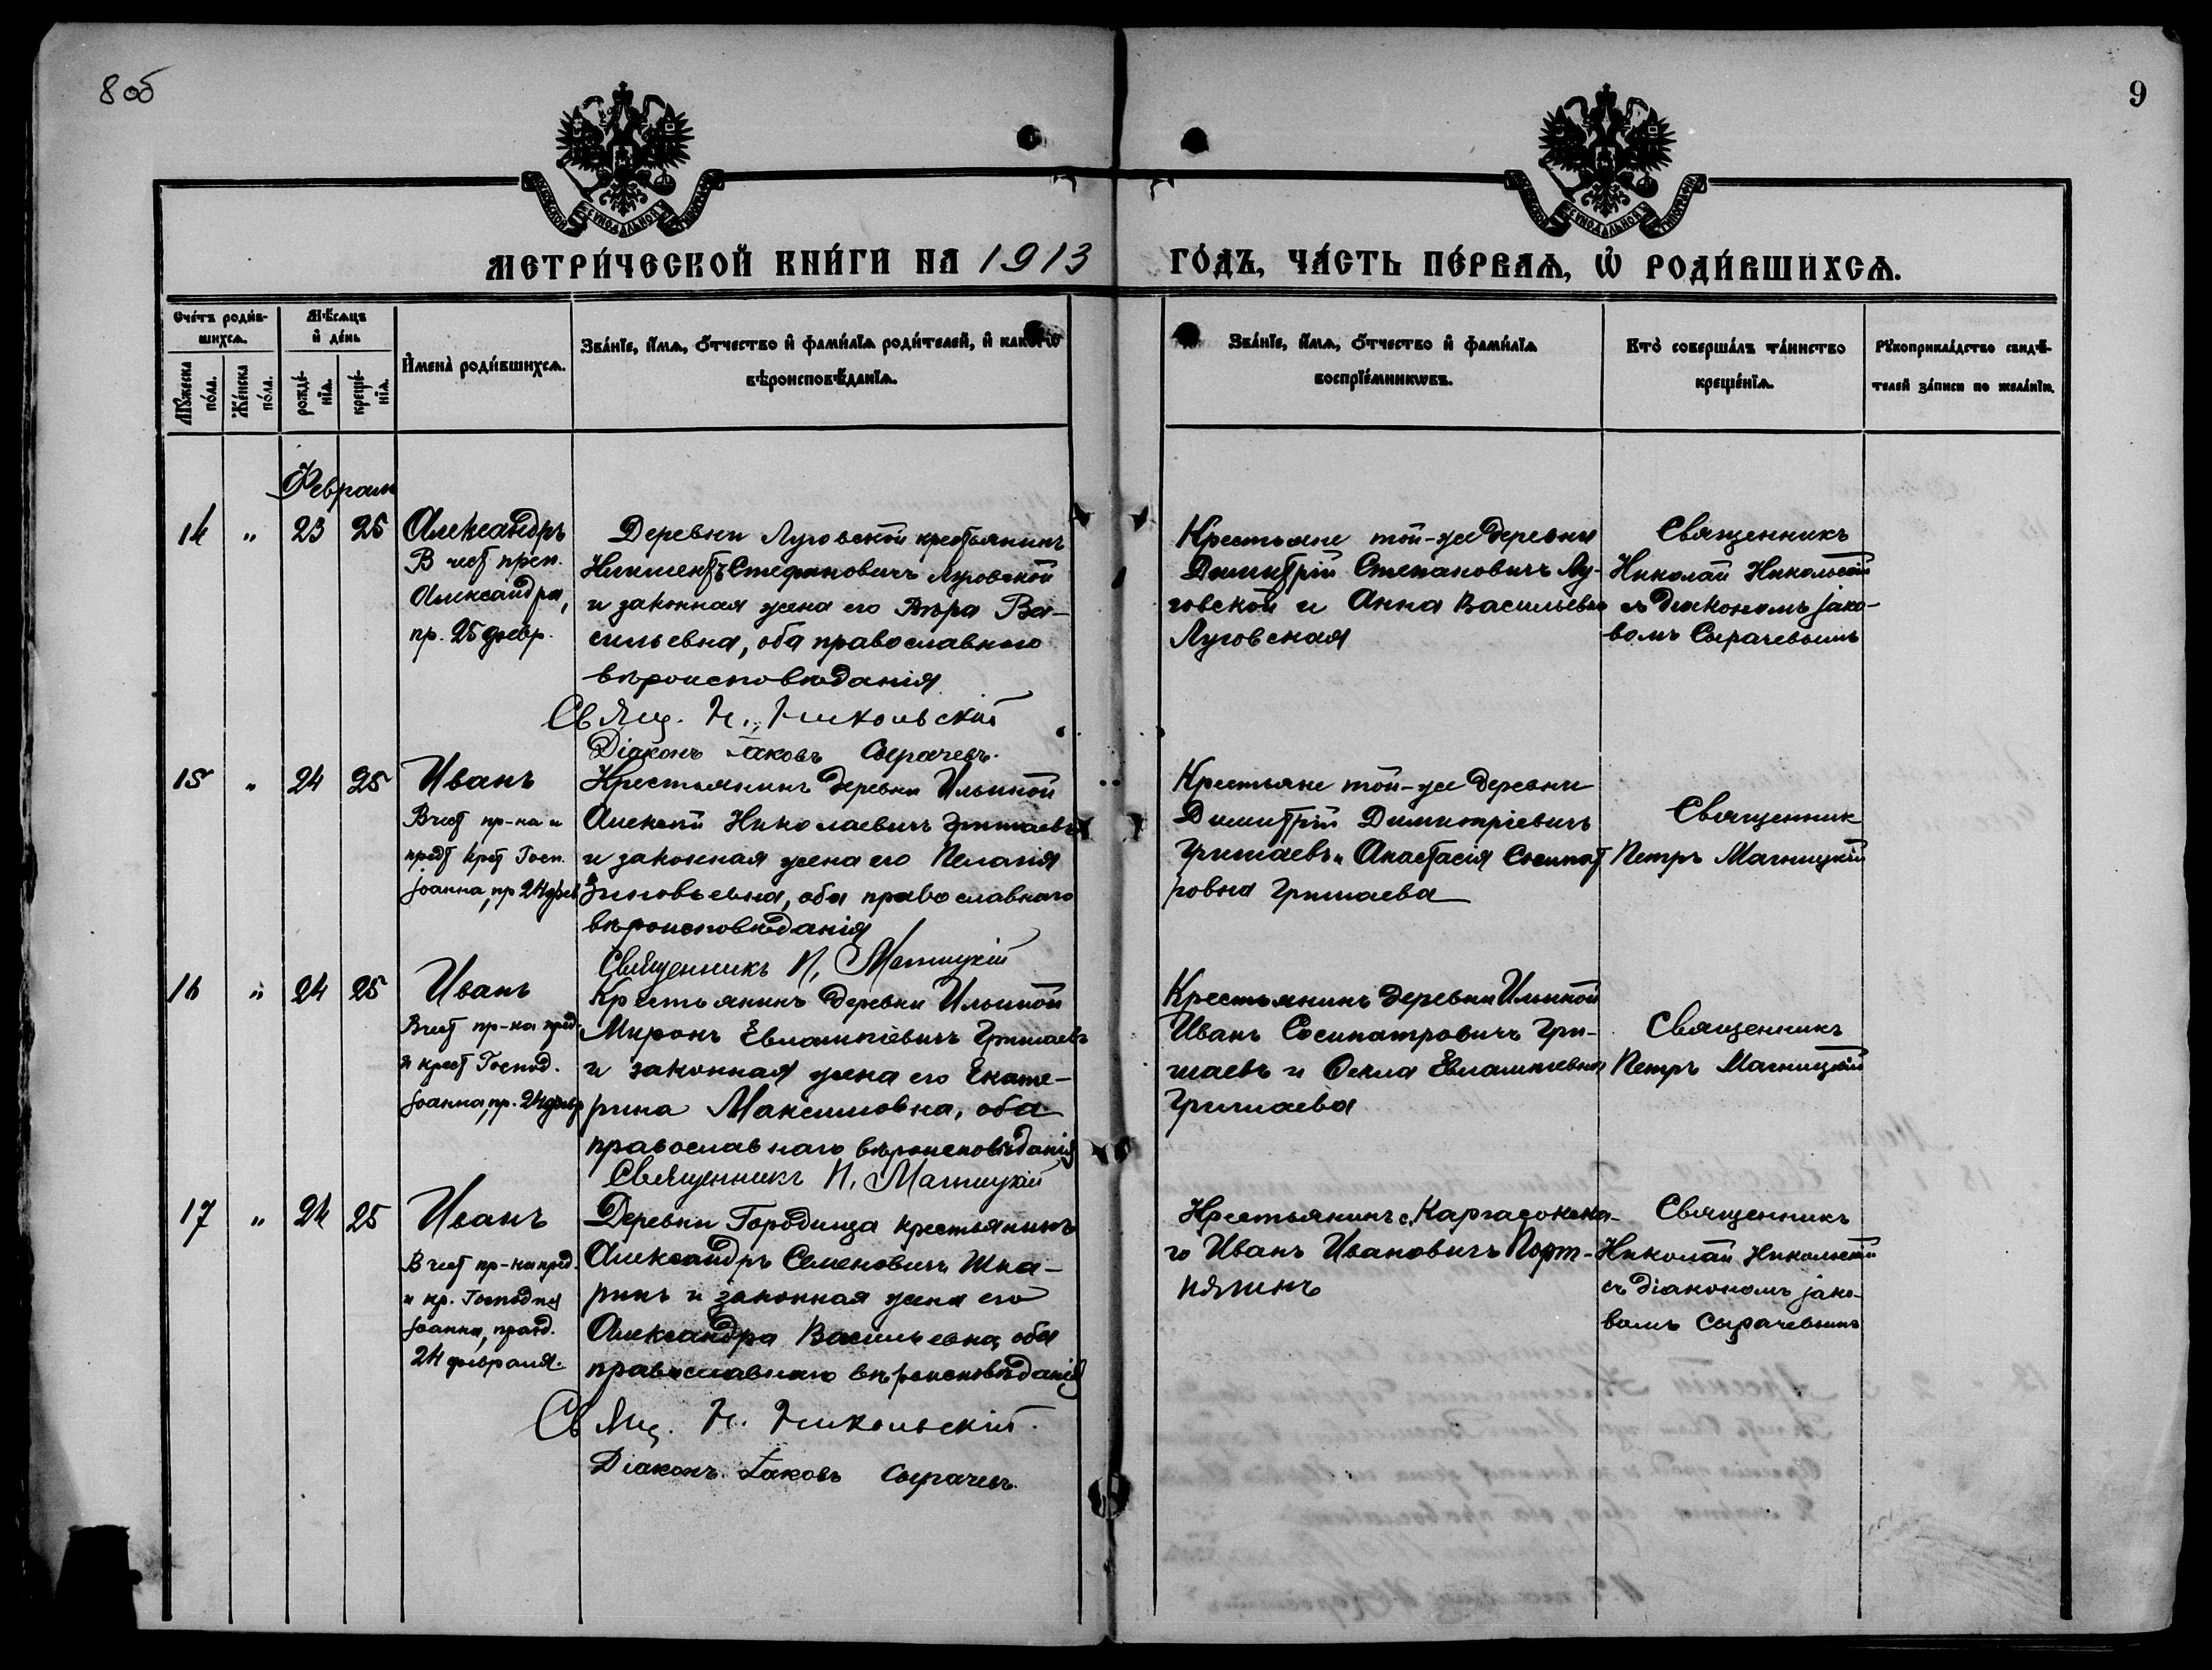 8 об
9
МЕТРИ́ЧЕСКОЙ КНИ́ГИ НА 1913 ГО́ДЪ, ЧА́СТЬ ПЕ́РВАѦ, Ѡ҆ РОДИ́ВШИХСѦ.
Сче́тъ роди́в-
шихсѧ.
Мѣ́сѧцъ
и҆ де́нь
И҆мена̀ роди́вшихсѧ.
Зва́нїе, и҆́мѧ, ѻ҆́тчество и҆ фами́лїѧ роди́телей, и҆ како́гѡ
вѣроисповѣ́данїѧ.
Зва́нїе, и҆́мѧ, ѻ҆́тчество и҆ фами́лїѧ
воспрїе́мникѡвъ.
Кто̀ соверша́лъ та́инство
креще́нїѧ.
Рꙋкоприкла́дство свидѣ́-
телей за́писи по жела́нїю.
Мꙋ́жеска
по́ла.
Же́нска
по́ла.
рожде́-
нїѧ.
креще́-
нїѧ.
Февраль
14 " 23 25
Александръ
В чест преп.
Александра,
пр. 25 февр.
Деревни Луговской крестьянинъ
Стефановичъ Луговской
и законная жена его Вѣра Ва-
сильевна, оба православнаго
вѣроисповѣданія
Свящ. Н. Никольскій
Діаконъ Іаковъ Сырачевъ.
Крестьяне той-же деревни
Димитрій Степановичъ Лу-
говской и Анна Васильевна
Луговская
Священникъ
Николай Никольскій
съ діакономъ Іако-
вомъ Сырачевымъ
15 " 24 25
Иванъ
В чест пр-ка и
предт крест Госп.
Іоанна, пр 24 фев
Крестьянинъ деревни Ильиной
Алексій Николаевичъ Гришаевъ
и законная жена его Пелагія
Зиновьевна, оба православнаго
вѣроисповѣданія
Священникъ П. Магницкій
Крестьяне той-же деревни
Димитрій Димитріевичъ
Гришаевъ и Анастасія Сосипат
ровна Гришаева
Священник
Петръ Магницкій
16 " 24 25
Иванъ
В чест пр-ка пред.
и крест Господ.
Іоанна, пр. 24 февр
Крестьянинъ деревни Ильиной
Миронъ Евлампіевичъ Гришаевъ
и законная жена его Екате-
рина Максимовна, оба
православнаго вѣроисповѣданія
Священникъ П. Магницкій
Крестьянинъ деревни Ильиной
Иванъ Сосипатровичъ Гри-
шаевъ и Ѳекла Евлампіевна
Гришаева
Священникъ
Петръ Магницкій
17 " 24 25
Иванъ
В чест пр-ка пред.
и кр. Господня
Іоанна, празд.
24 февраля.
Деревни Городища крестьянинъ
Александръ Семеновичъ Шка-
ринъ и законная жена его
Александра Васильевна, оба
православнаго вѣроисповѣданія
Свящ. Н. Никольскій.
Діаконъ Іаковъ Сырачевъ.
Крестьянинъ с. Каргасокска-
го Иванъ Ивановичъ Порт-
нягинъ
Священникъ
Николай Никольскій
съ діакономъ Іако-
вомъ Сырачевымъ